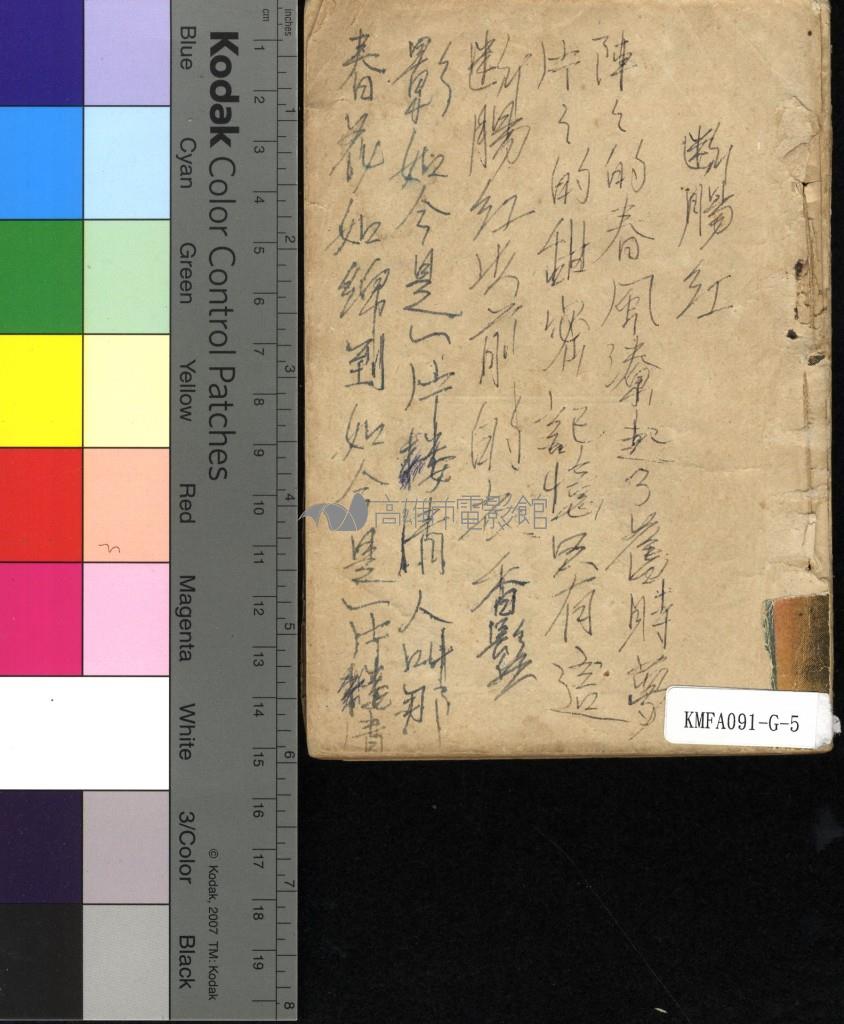 斷腸紅
陣々的春風瀠起了舊時夢
片々的甜密記憶只有這
斷腸紅 前的 香
影如今是一片 清人叫那
春花如綿到如今是一片 清
高雄市電影館
KMFA091-G-5
Kodak Color Control Patches
Blue Cyan Green Yellow Red Magenta White 3/Color Black
© Kodak, 2007 TM: Kodak
cm 1 2 3 4 5 6 7 8 9 10 11 12 13 14 15 16 17 18 19
inches 1 2 3 4 5 6 7 8